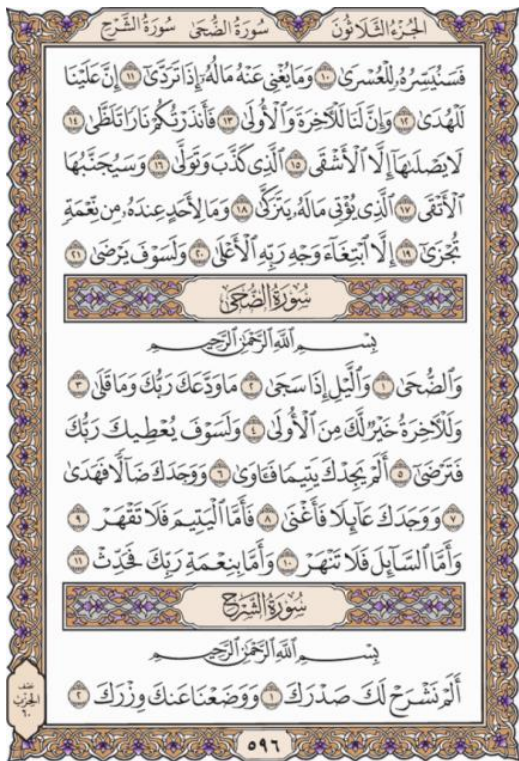 الجُزْءُ الثَّلَاثُونَ سُورَةُ الضُّحَىٰ سُورَةُ الشَّرْحِ
فَسَنُيَسِّرُهُۥ لِلْعُسْرَىٰ ١٠ وَمَا يُغْنِي عَنْهُ مَالُهُۥٓ إِذَا تَرَدَّىٰٓ ١١ إِنَّ عَلَيْنَا
لَلْهُدَىٰ ١٢ وَإِنَّ لَنَا لَلْءَاخِرَةَ وَٱلْأُولَىٰ ١٣ فَأَنذَرْتُكُمْ نَارًا تَلَظَّىٰ ١٤
لَا يَصْلَىٰهَآ إِلَّا ٱلْأَشْقَى ١٥ ٱلَّذِي كَذَّبَ وَتَوَلَّىٰ ١٦ وَسَيُجَنَّبُهَا
ٱلْأَتْقَى ١٧ ٱلَّذِي يُؤْتِي مَالَهُۥ يَتَزَكَّىٰ ١٨ وَمَا لِأَحَدٍ عِندَهُۥ مِن نِّعْمَةٍ
تُجْزَىٰٓ ١٩ إِلَّا ٱبْتِغَآءَ وَجْهِ رَبِّهِ ٱلْأَعْلَىٰ ٢٠ وَلَسَوْفَ يَرْضَىٰ ٢١
سُورَةُ الضُّحَىٰ
بِسْمِ ٱللَّهِ ٱلرَّحْمَٰنِ ٱلرَّحِيمِ
وَٱلضُّحَىٰ ١ وَٱلَّيْلِ إِذَا سَجَىٰ ٢ مَا وَدَّعَكَ رَبُّكَ وَمَا قَلَىٰ ٣
وَلَلْءَاخِرَةُ خَيْرٌ لَّكَ مِنَ ٱلْأُولَىٰ ٤ وَلَسَوْفَ يُعْطِيكَ رَبُّكَ
فَتَرْضَىٰٓ ٥ أَلَمْ يَجِدْكَ يَتِيمًا فَـَٔاوَىٰ ٦ وَوَجَدَكَ ضَآلًّا فَهَدَىٰ
٧ وَوَجَدَكَ عَآئِلًا فَأَغْنَىٰ ٨ فَأَمَّا ٱلْيَتِيمَ فَلَا تَقْهَرْ ٩
وَأَمَّا ٱلسَّآئِلَ فَلَا تَنْهَرْ ١٠ وَأَمَّا بِنِعْمَةِ رَبِّكَ فَحَدِّثْ ١١
سُورَةُ الشَّرْحِ
بِسْمِ ٱللَّهِ ٱلرَّحْمَٰنِ ٱلرَّحِيمِ
أَلَمْ نَشْرَحْ لَكَ صَدْرَكَ ١ وَوَضَعْنَا عَنكَ وِزْرَكَ ٢
نصف
الحزب
٦٠
٥٩٦